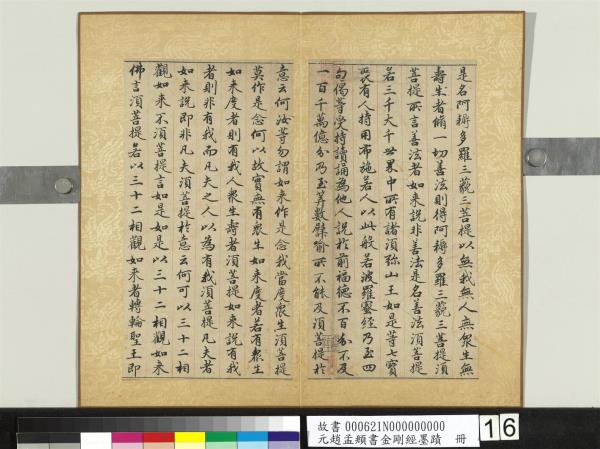 是名阿耨多羅三藐三菩提以無我無人無衆生無
壽生者脩一切善法則得阿耨多羅三藐三菩提須
菩提所言善法者如来說非善法是名善法須菩提
若三千大千世界中所有諸須弥山王如是等七寶
聚有人持用布施若人以此般若波羅蜜經乃至四
句偈等受持讀誦為他人說於前福德不百分不及
一百千萬億分乃至筭數譬喻所不能及須菩提於
意云何汝等勿謂如来作是念我當度衆生須菩提
莫作是念何以故實無有衆生如来度者若有衆生
如来度者則有我人衆生壽者須菩提如来說有我
者則非有我而凡夫之人以為有我須菩提凡夫者
如来說即非凡夫須菩提於意云何可以三十二相
觀如来不須菩提言如是如是以三十二相觀如来
佛言須菩提若以三十二相觀如来者轉輪聖王即
故書 000621N000000000
元趙孟頫書金剛經墨蹟 冊
16